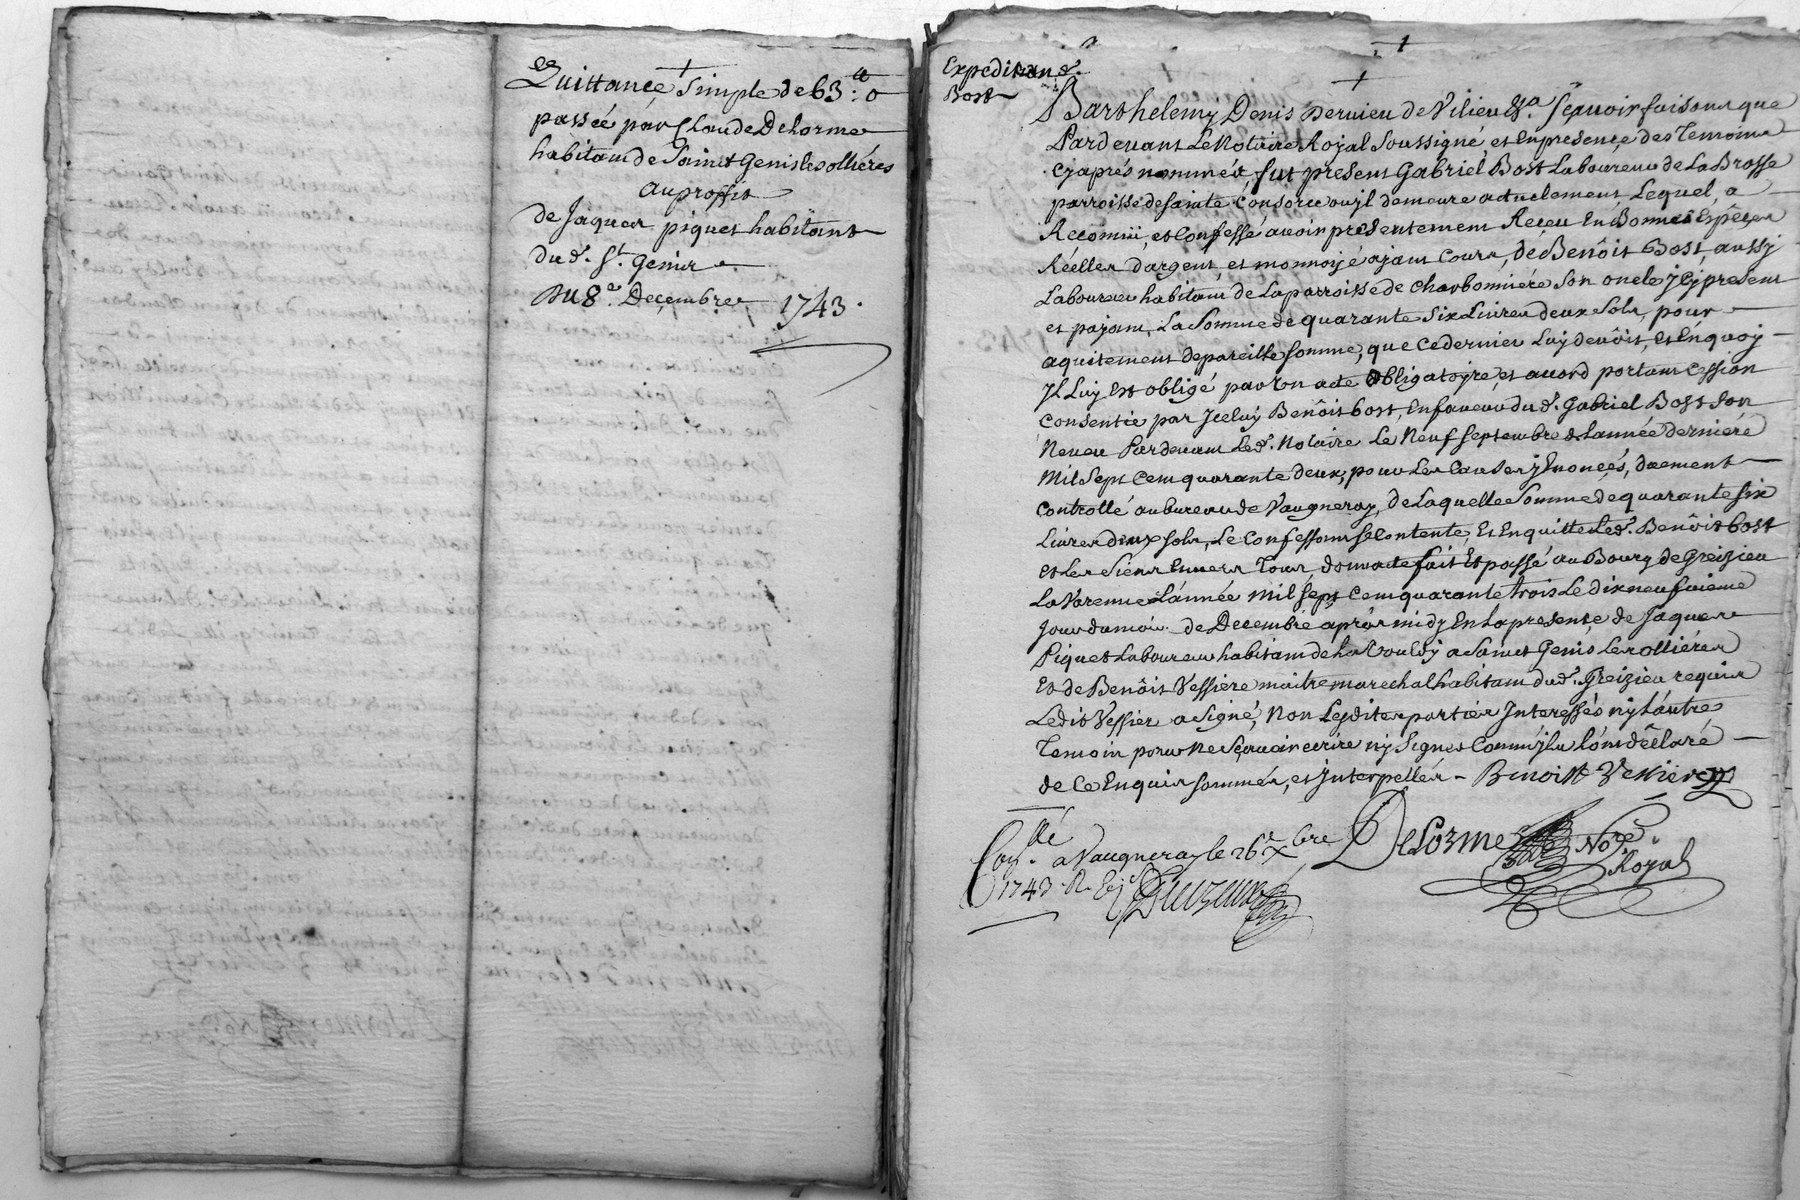 Quittance simple de 63ᵗᵗ: 0
passée par Claude Delorme
habitant de Sainct Genis les ollières
au proffit
de Jaques piquet habitant
dud. St. Genis
Du 8e. Decembre 1743.
Expedition ed.
Bost
Barthelemy Denis Dervieu de Vilieu &a. sçavoir faisons que
Pardevant Le Notaire Royal Soussigné et En presence des Temoins
cy aprés nommés, fut present Gabriel Bost Laboureur de La Brosse
parroisse de sainte Consorce ou yl demeure actuelement, Lequel, a
Reconnü, et Confessé avoir presentement Receu En Bonnes Espéces
Réelles d'argent, et monnoyé ajant Cours, de Benôit Bost, aussy
Laboureur habitant de La parroisse de Charbonniére son oncle jcy present
et pajant, La Somme de quarante six Livres deux Sols, pour
aquitement de pareille somme, que ce dernier Luy devôit, et En quoy
Jl Luy Est obligé par un acte Obligatoire, et acord portant Cession
Consentie par Jceluy Benôit bost, En faveur du d. Gabriel Bost son
Neveu Pardevant Led. Notaire Le Neuf septembre de L'année derniére
Mil Sept Cent quarante deux, pour Les Causes y Enoncés, duement
Controllé au bureau de Vaugneray, de Laquelle Somme de quarante six
Livres deux sols, Le Confessant se Contente, Et En quitte Led. Benôit bost
et Les Siens Envers Tous, dont acte fait Et passé au Bourg de Greizieu
La Varenne L'année mil sept Cent quarante trois Le dix neufvieme
jour du mois de Decembre aprés midy En La presence de Jaques
Piquet Laboureur habitant de La a Sainct Genis Les ollières
Et de Benôit Vessiere maitre marechal habitant dud. Greizieu requis
Ledit Vessier a Signé, Non Lesdites parties Interessés ny L'autre
Temoin pour ne Sçavoir ecrire ny Signer Comm'jls L'ont déclaré
de Ce Enquis sommés, et Interpellés - Benoist Vessiere
Conllé. a Vaugneray le 26e. Xbre Delorme Nore.
1743. R. Royal